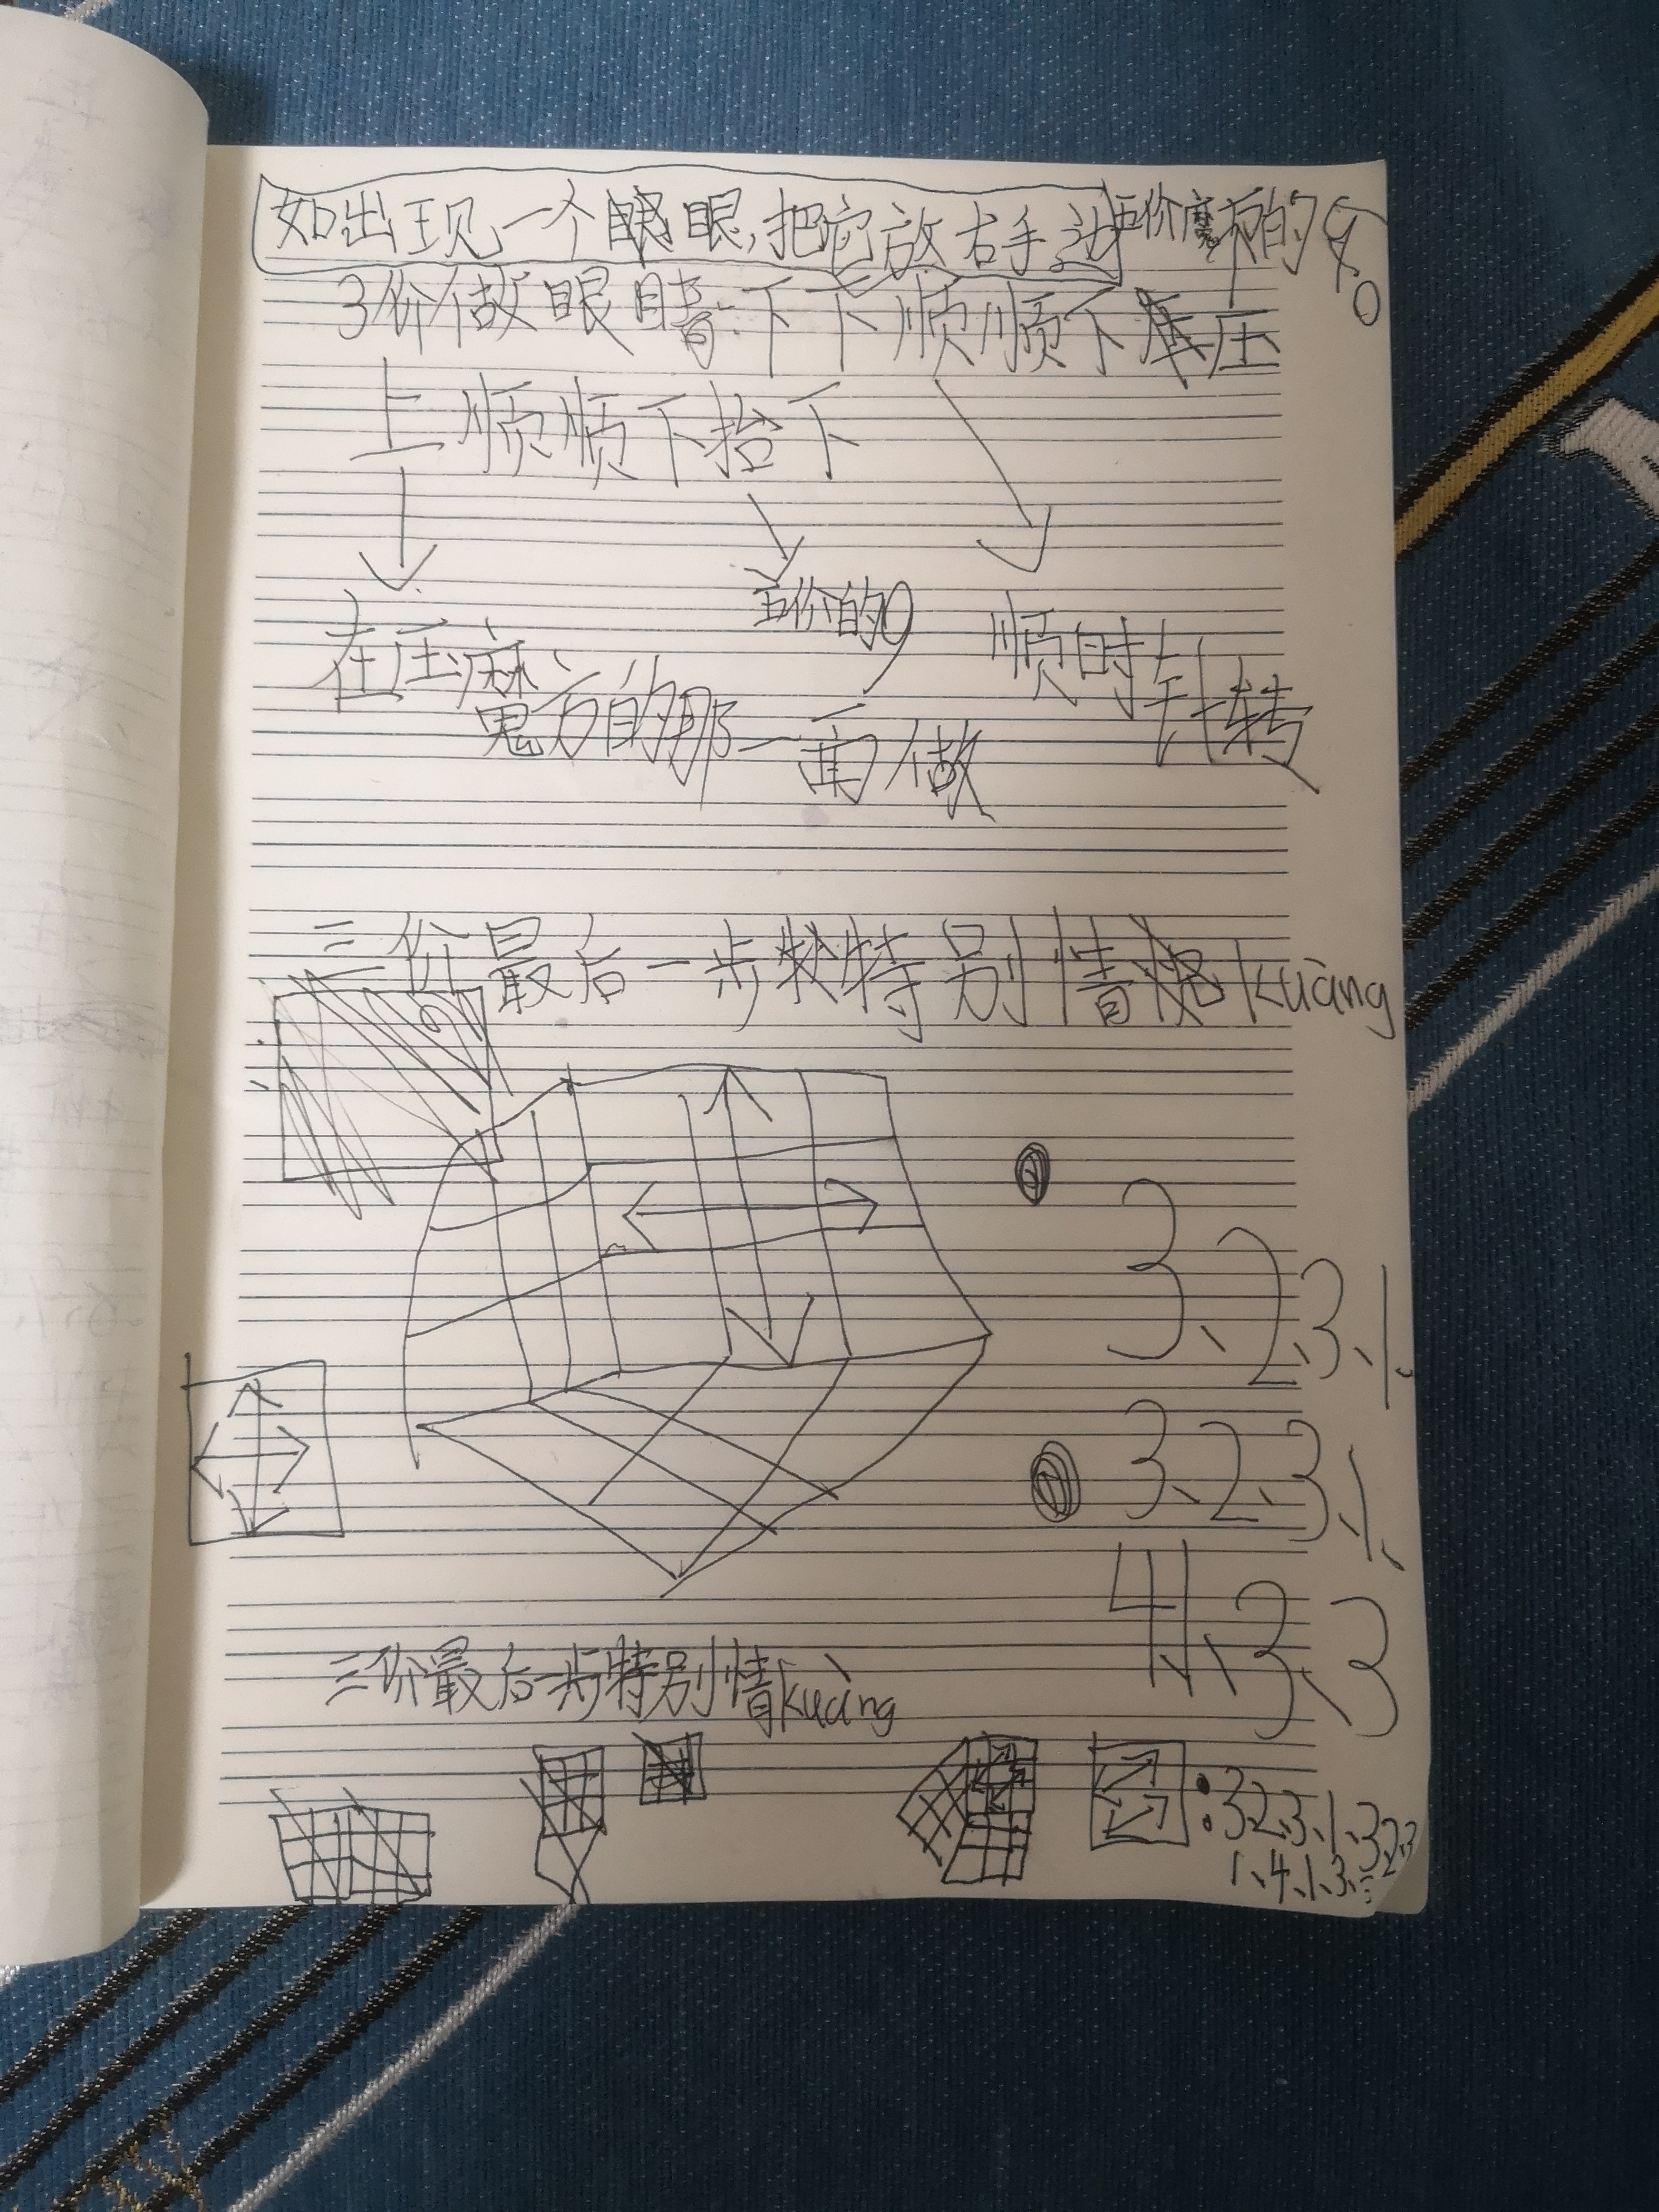 如出现一个眼眼,把它放右手边
五价魔方的
3价做眼睛:下下顺顺下压
上顺顺下抬下
五价的
在压麻
魔方的那一面做
顺时针转
三价最后一步特别情kuàng
3、2、3、1、
3、2、3、1、
4、1、3、3
三价最后一步特别情kuàng
:3、2、3、1、3、2、3
1、4、1、3、3